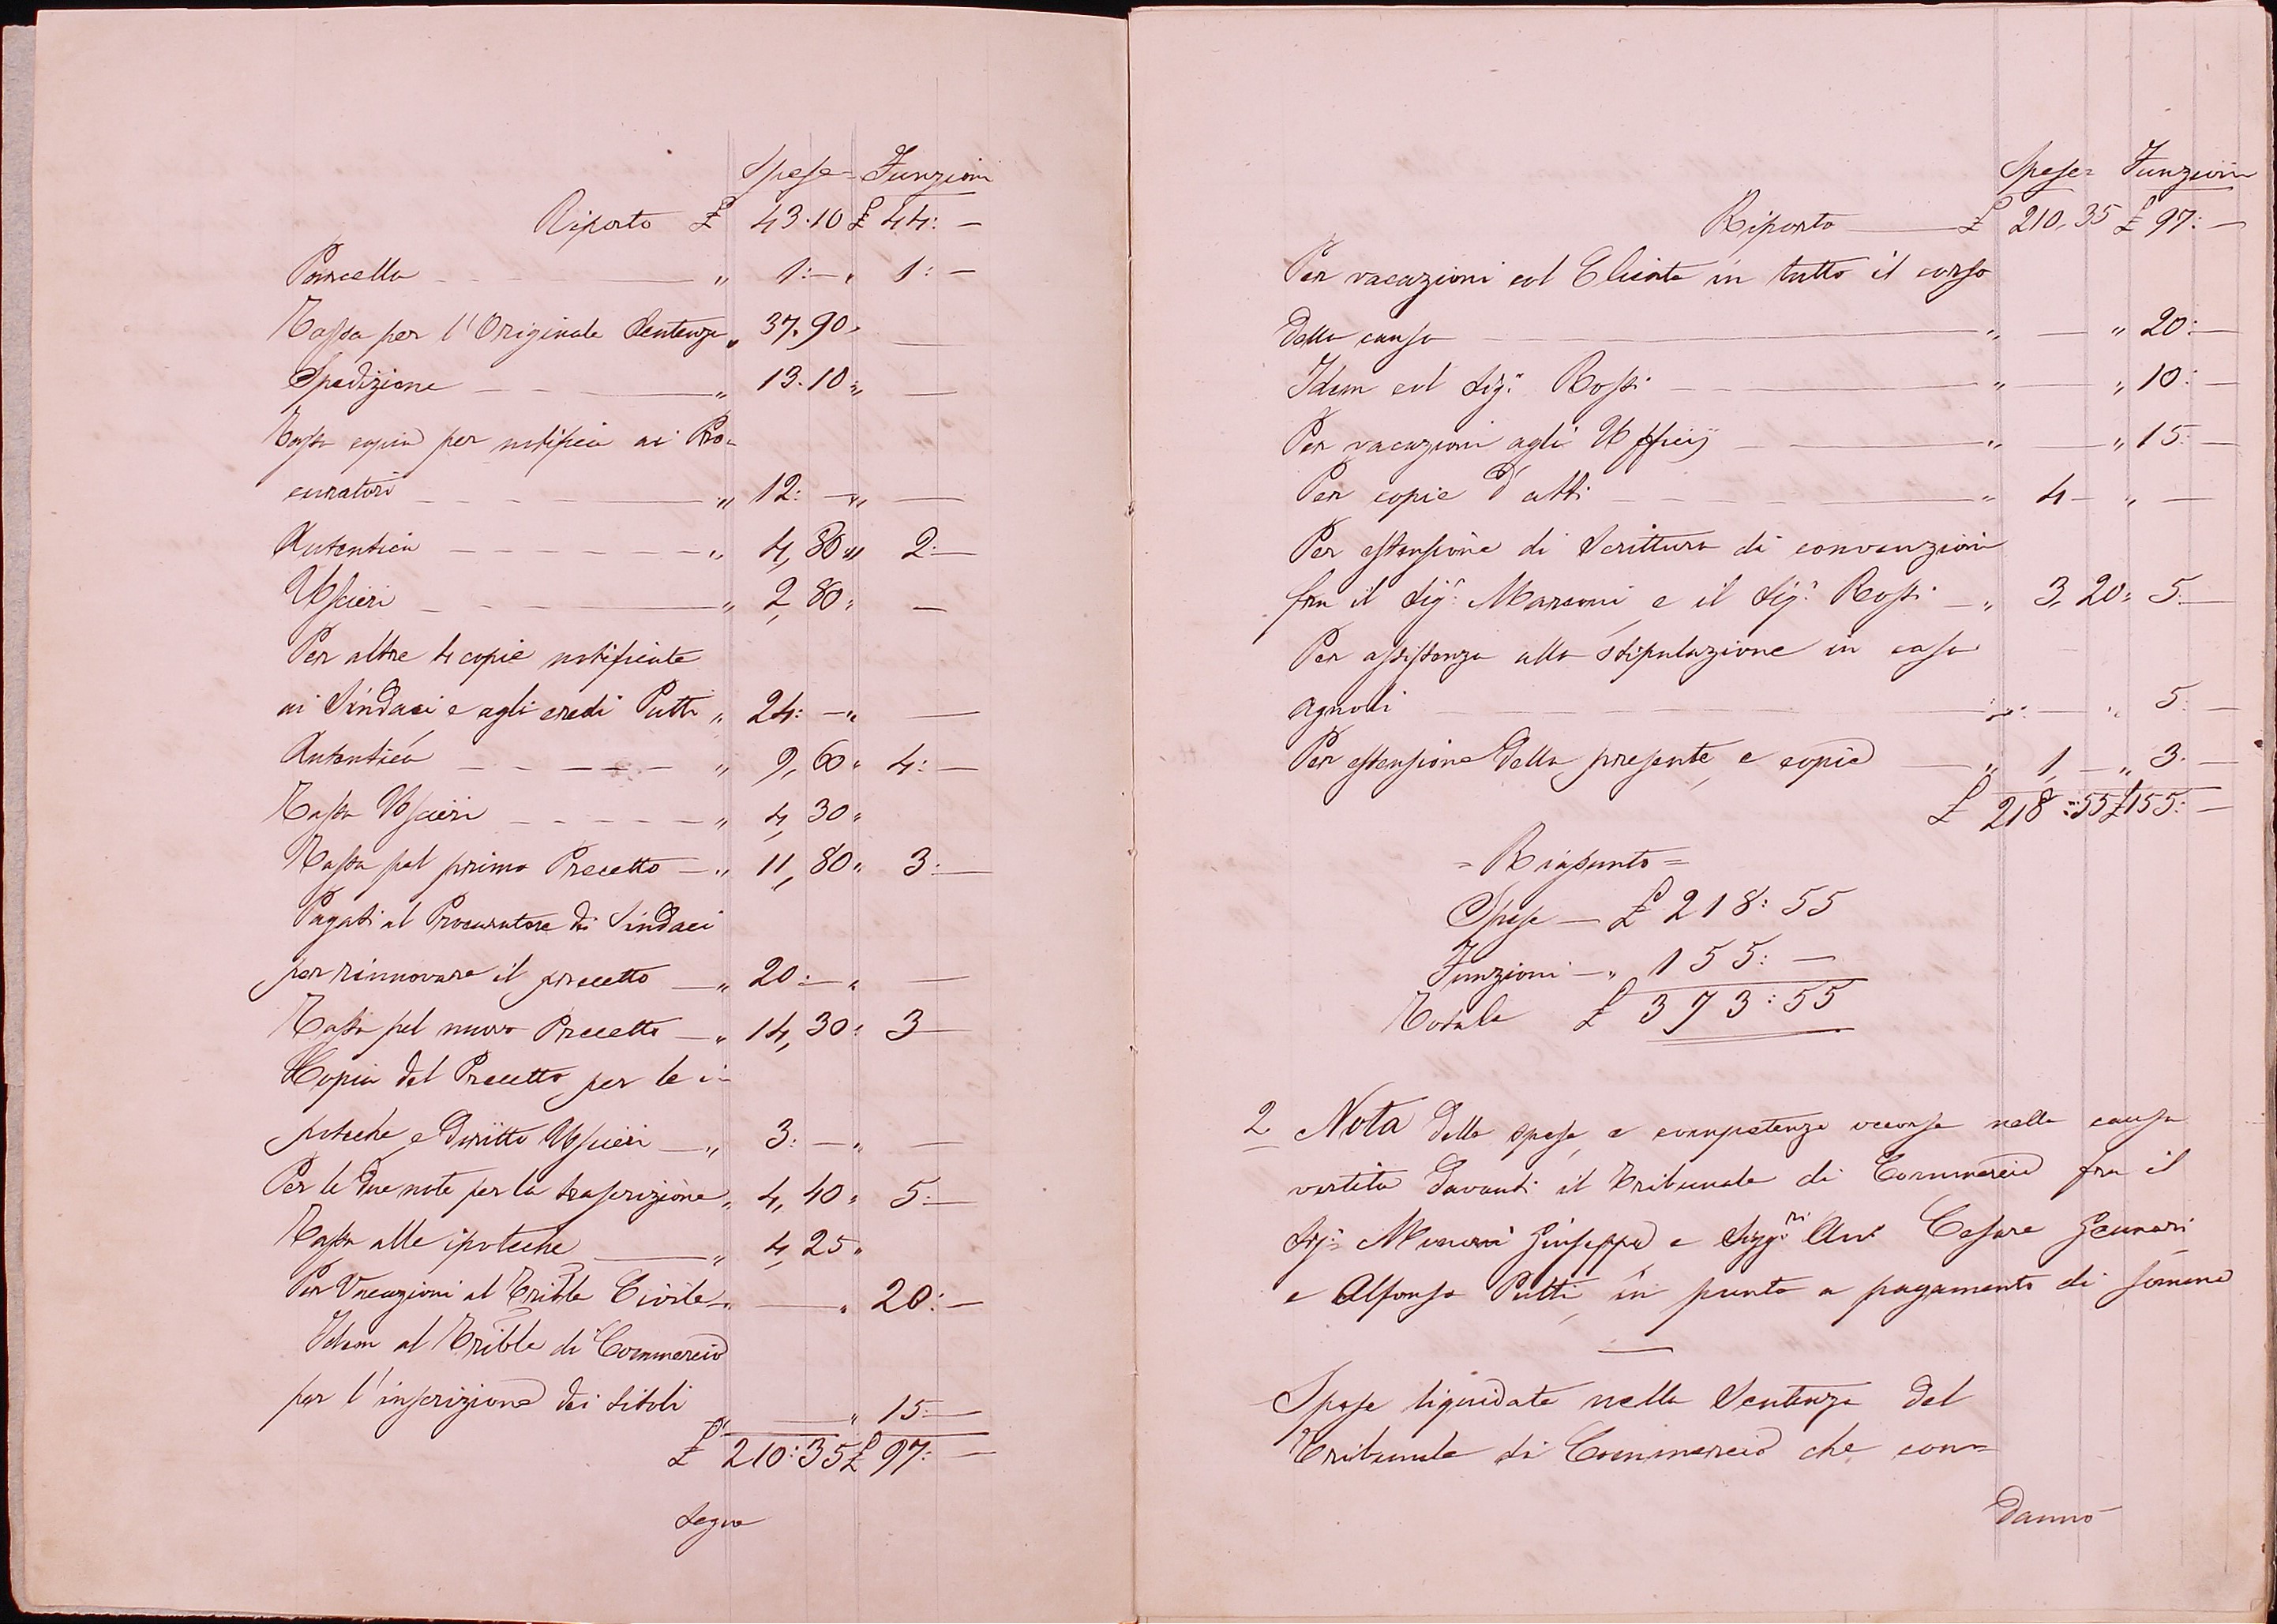 Spese = Funzioni
Riporto £ 43.10 £ 44: —
Parcella — " 1: — " 1: —
Tassa per l'Originale Sentenza " 37.90 " —
Spedizione — " 13.10 " —
Tassa copia per notifica ai Pro=
curatori — " 12: — " —
Autentica — " 4,80 " 2: —
Uscieri — " 2,80 " —
Per altre 4 copie notificate
ai Sindaci e agli eredi Putti " 24: — " —
Autentica — " 9,60 " 4: —
Tassa Uscieri — " 4,30 "
Tassa pel primo Precetto — " 11,80 " 3: —
Pagati al Procuratore di Sindaci
per rinnovare il precetto — " 20: — " —
Tassa pel nuovo Precetto — " 14,30 " 3 —
Copia del Precetto per le i-
poteche e Diritto Uscieri — " 3: — " —
Per le due note per la trascrizione " 4,40 " 5: —
Tassa alle ipoteche — " 4,25 "
Per Vacazioni al Trible Civile " — " 20: —
Idem al Trible di Commercio
per l'inscrizione dei titoli " — " 15: —
£ 210:35 £ 97: —
Segue
Spese = Funzioni
Riporto — £ 210,35 £ 97: —
Per vacazioni col Cliente in tutto il corso
della causa — " — " 20: —
Idem col Sigr. Rossi — " — " 10: —
Per vacazioni agli Ufficij — " — " 15: —
Per copie d'atti — " 4 — " —
Per estensione di Scrittura di convenzioni
fra il Sigr. Marconi e il Sigr. Rossi — " 3,20 " 5: —
Per assistenza alla stipulazione in casa
Agnoli — " — " 5: —
Per estensione della presente e copia — " 1, — " 3: —
£ 218:55 £ 155: —
= Riassunto =
Spese — £ 218:55
Funzioni — " 155: —
Totale £ 373:55
2 Nota delle spese e competenze occorse nella causa
vertita davanti il Tribunale di Commercio fra il
Sigr. Giuseppe e Siggri. Cesare Gennari
e Alfonso Putti in punto a pagamento di somme
—
Spese liquidate nella Sentenza del
Tribunale di Commercio che con=
dannò